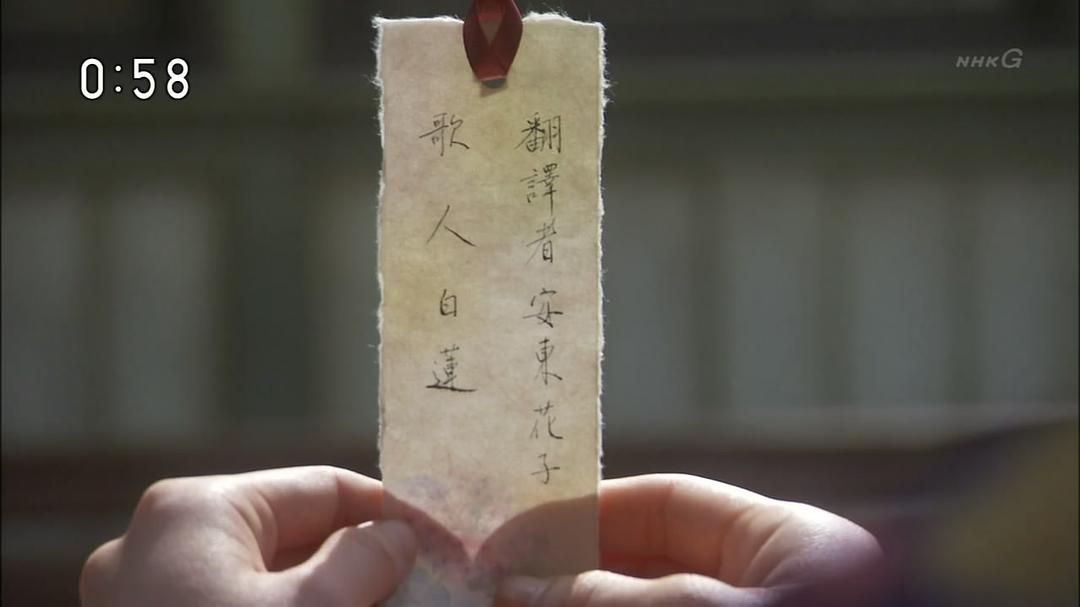 0:58
NHK G
翻譯者 安東花子
歌人 白蓮